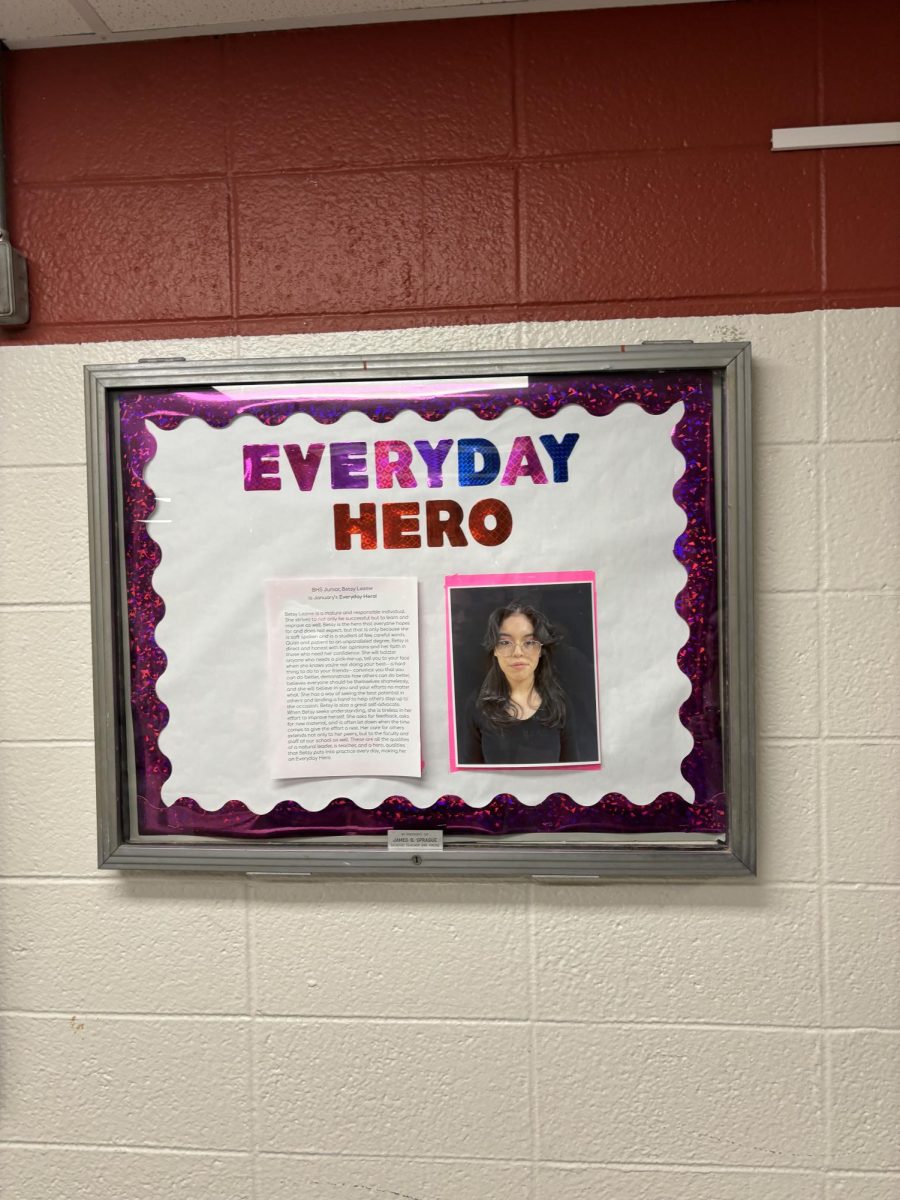 EVERYDAY
HERO
BHS Junior, Betsy Leasne
is January's Everyday Hero!
Betsy Leasne is a mature and responsible individual.
She strives to not only be successful but to learn and
improve as well. Betsy is the hero that everyone hopes
for and does not expect, but that is only because she
is soft spoken and is a student of few, careful words.
Quiet and patient to an unparalleled degree, Betsy is
direct and honest with her opinions and her faith in
those who need her confidence. She will bolster
anyone who needs a pick-me-up, tell you to your face
when she knows you're not doing your best-- a hard
thing to do to your friends-- convince you that you
can do better, demonstrate how others can do better,
believes everyone should be themselves shamelessly,
and she will believe in you and your efforts no matter
what. She has a way of seeing the best potential in
others and lending a hand to help others step up to
the occasion. Betsy is also a great self-advocate.
When Betsy seeks understanding, she is tireless in her
effort to improve herself. She asks for feedback, asks
for new material, and is often let down when the time
comes to give the effort a rest. Her care for others
extends not only to her peers, but to the faculty and
staff of our school as well. These are all the qualities
of a natural leader, a teacher, and a hero, qualities
that Betsy puts into practice every day, making her
an Everyday Hero.
JAMES B. SPRAGUE